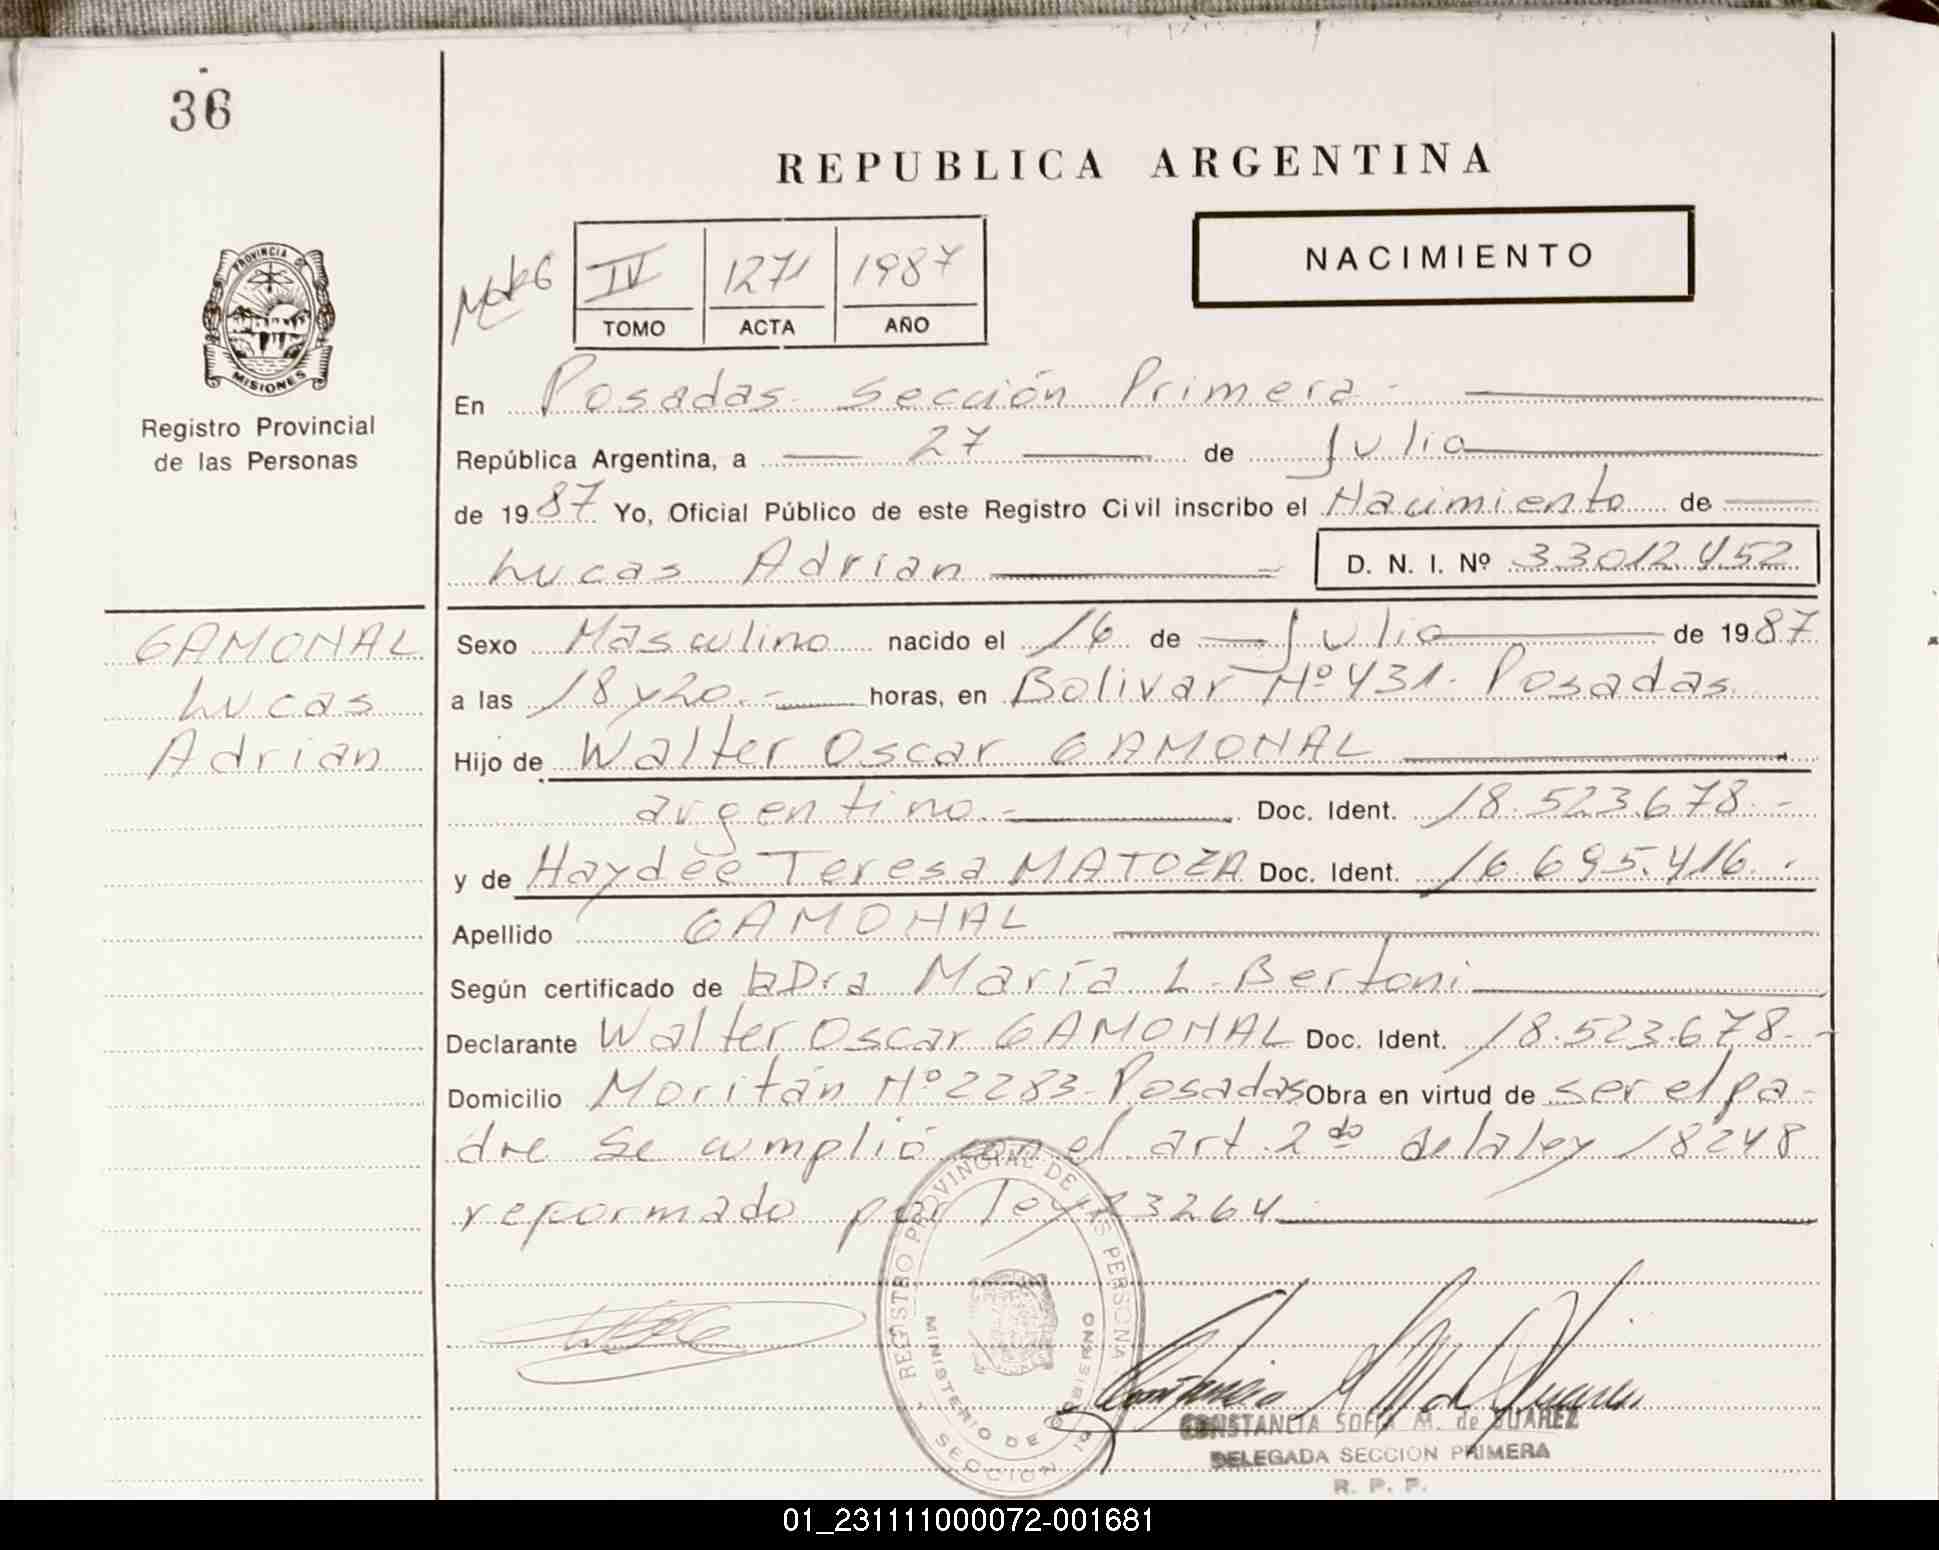 36
REPUBLICA ARGENTINA
NACIMIENTO
IV 1271 1987
TOMO ACTA AÑO
PROVINCIA DE
MISIONES
Registro Provincial
de las Personas
En Posadas Sección Primera -
República Argentina, a 27 de Julio
de 1987 Yo, Oficial Público de este Registro Civil inscribo el Nacimiento de
Lucas Adrian D. N. I. Nº 33012.452
GAMONAL
Lucas
Adrian
Sexo Masculino nacido el 16 de Julio de 1987
a las 18 y 20.- horas, en Bolivar Nº 431. Posadas
Hijo de Walter Oscar GAMONAL
argentino.- Doc. Ident. 18.523.678.-
y de Haydée Teresa MATOZA Doc. Ident. 16.695.416.-
Apellido GAMONAL
Según certificado de la Dra María L. Bertoni
Declarante Walter Oscar GAMONAL Doc. Ident. 18.523.678.-
Domicilio Moritán Nº 2283-Posadas Obra en virtud de ser el pa-
dre Se cumplió con el art. 2do de la ley 18248
reformado por ley 23264
REGISTRO PROVINCIAL DE LAS PERSONAS
MINISTERIO DE GOBIERNO
SECCION 1º
CONSTANCIA SOFIA M. de SUAREZ
DELEGADA SECCION PRIMERA
R. P. P.
01_231111000072-001681